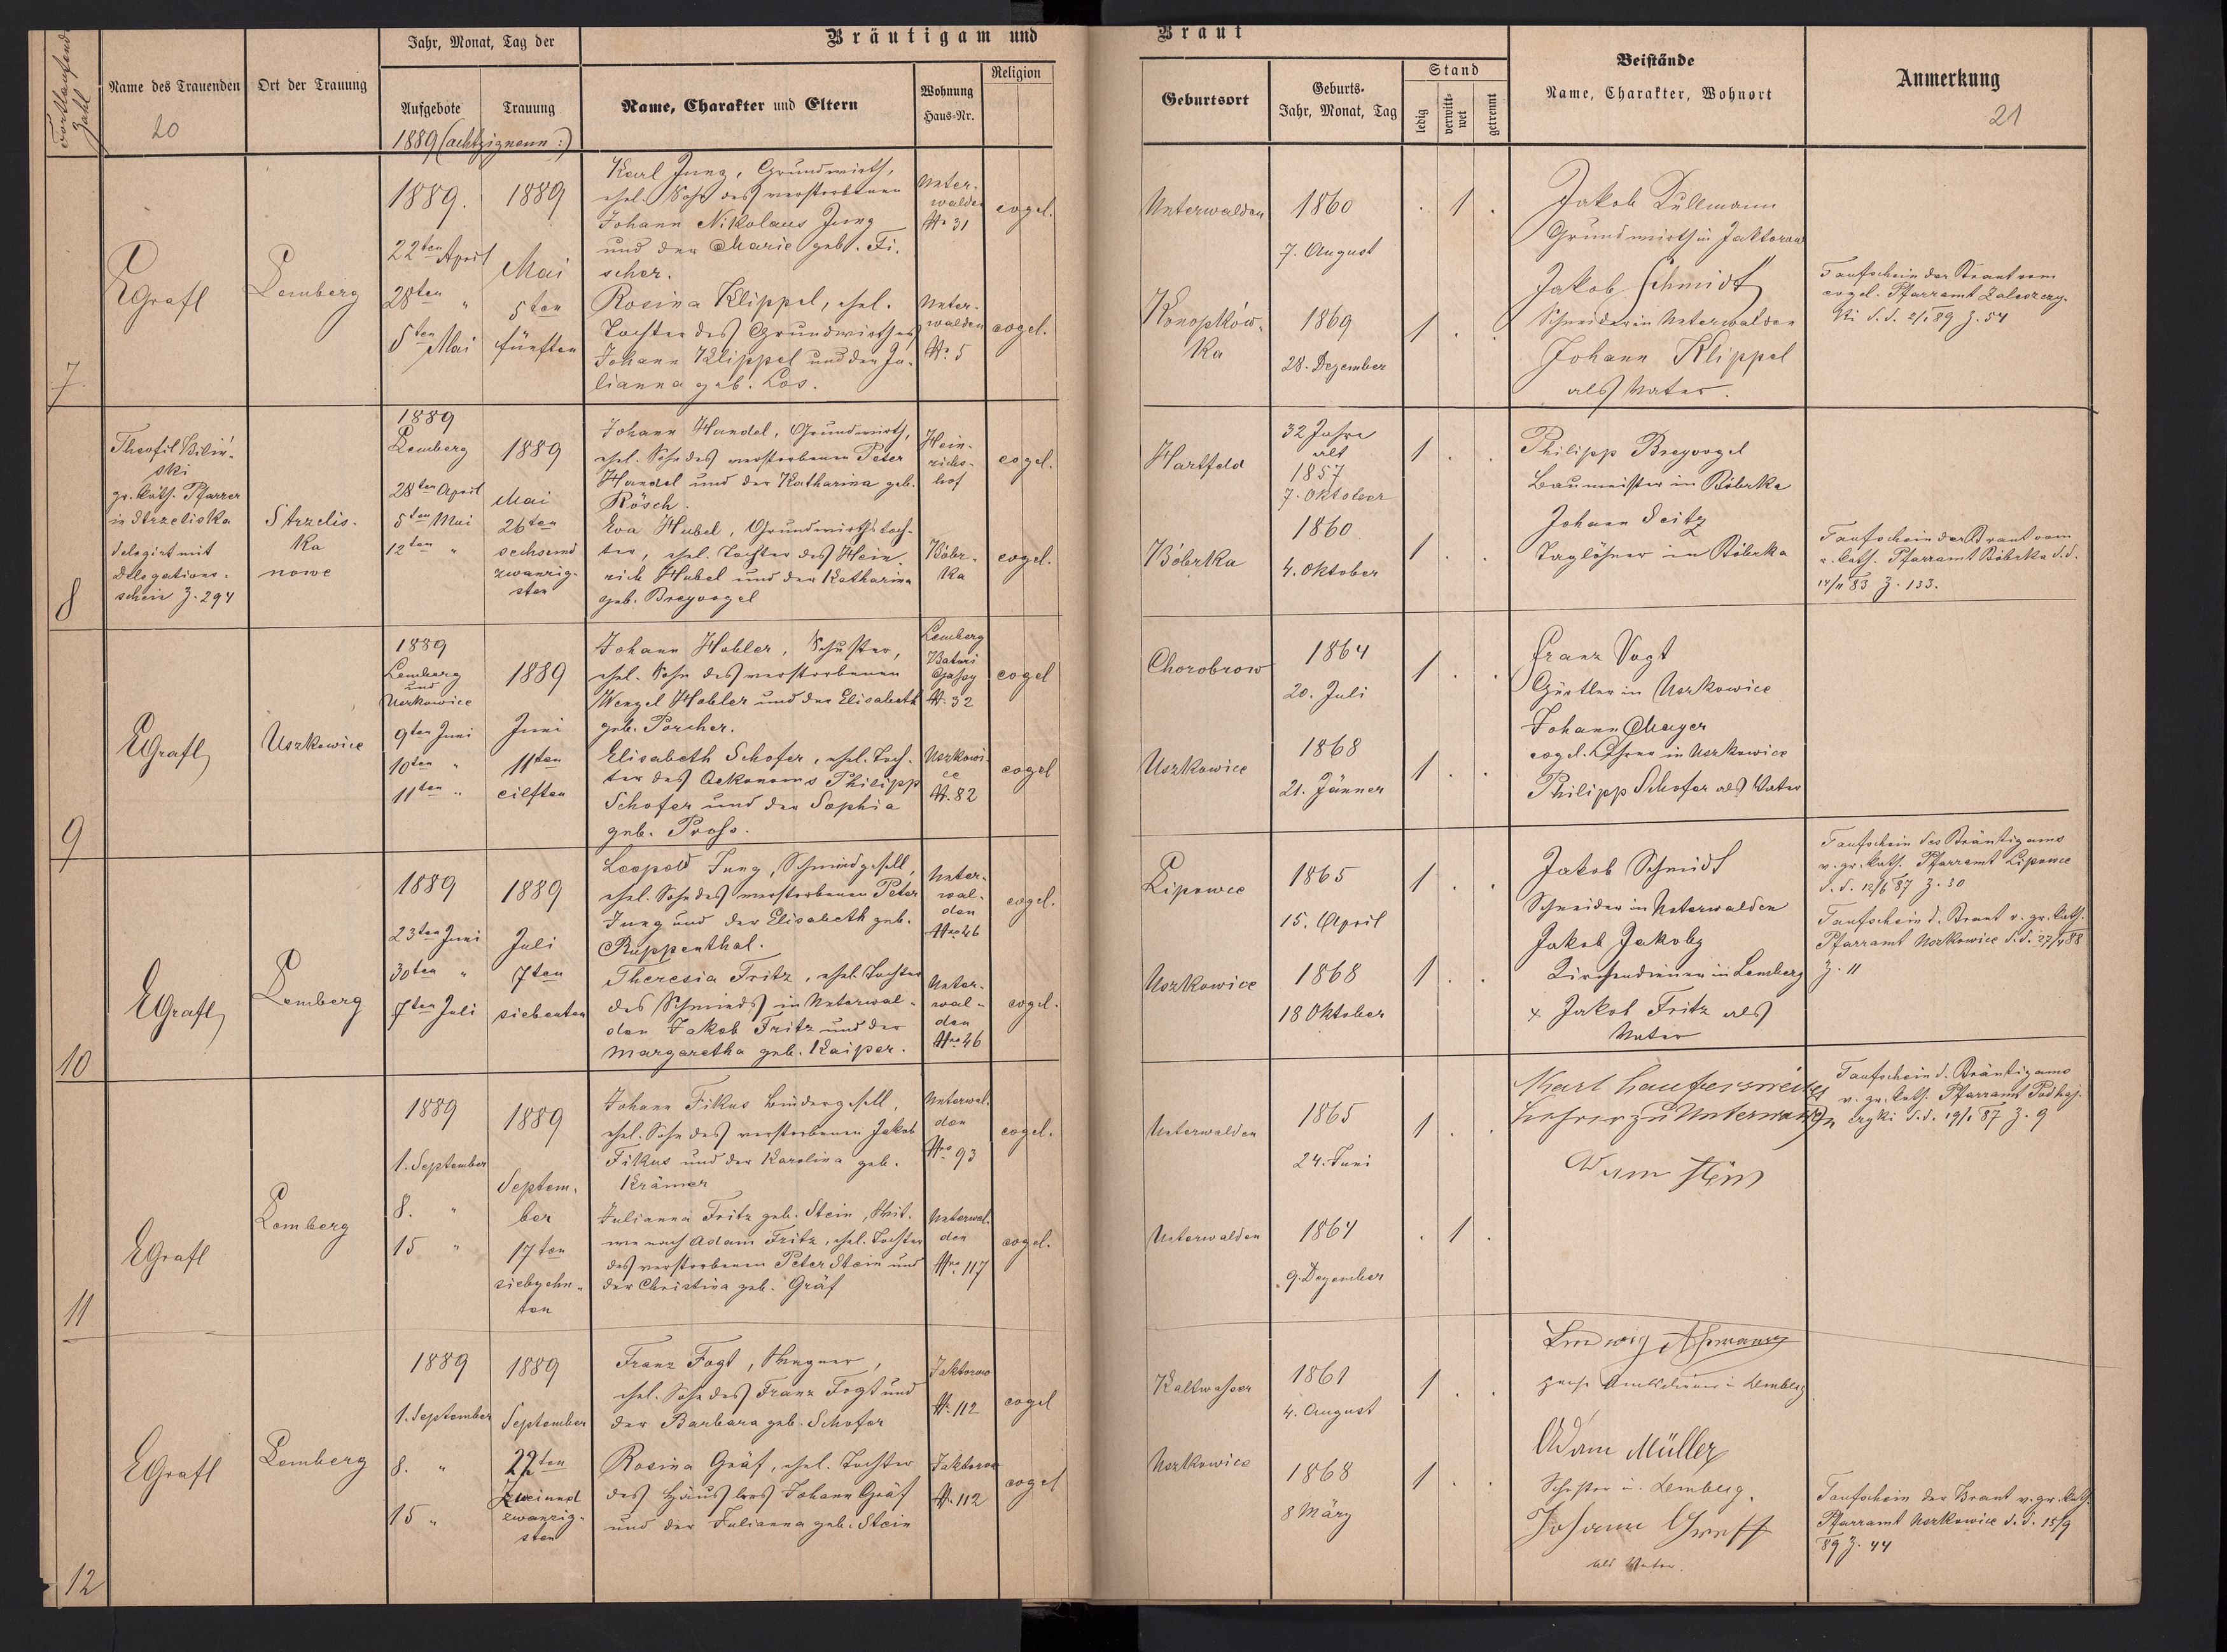 Fortlaufende Zahl
Name des Trauenden
20
Ort der Trauung
Jahr, Monat, Tag der
Aufgebote
Trauung
1889 (achtzigneun:)
Bräutigam und
Name, Charakter und Eltern
Wohnung
Haus-Nr.
Religion
Braut
Geburtsort
Geburts-
Jahr, Monat, Tag
Stand
ledig
verwitt-
wet
getrennt
Beistände
Name, Charakter, Wohnort
Anmerkung
21
7
EGrafl
Lemberg
1889.
22ten April
28ten "
5ten Mai
1889
Mai
5ten
fünften
Karl Jung, Grundwirth,
ehel. Sohn des verstorbenen
Johann Nikolaus Jung
und der Marie geb. Fi-
scher.
Unter-
walden
Nr 31
evgel.
Rosina Klippel, ehel.
Tochter des Grundwirthes
Johann Klippel und der Ju-
lianna geb. Los.
Unter-
walden
Nr. 5
evgel.
Unterwalden
1860
7. August
. 1 .
Konopków-
ka
1869
28. Dezember
1 . .
Jakob Kullmann
Grundwirth in Jaktorow
Jakob Schmidt
Schneider in Unterwalden
Johann Klippel
als Vater.
Taufschein der Braut vom
evgel. Pfarramt Zaleszczy-
ki d. d. 2/1 89 Z. 54
8
Theofil Biliń-
ski
gr. kath. Pfarrer
in Strzeliska
delegirt mit
Delegations-
schein Z. 294
Strzelis-
ka
nowe
1889
Lemberg
28ten April
5ten Mai
12ten "
1889
Mai
26ten
sechsund
zwanzig-
sten
Johann Handel, Grundwirth,
ehel. Sohn des verstorbenen Peter
Handel und der Katharina geb.
Rösch.
Hein-
richs-
hof
evgel.
Eva Hubel, Grundwirthstoch-
ter, ehel. Tochter des Hein-
rich Hubel und der Katharina
geb. Breyvogel
Bóbr-
ka
evgel.
Hartfeld
32 Jahre
alt
1857
7. Oktober
1 . .
Bóbrka
1860
4. Oktober
1 . .
Philipp Breyvogel
Baumeister in Bóbrka
Johann Seitz
Taglöhner in Bóbrka
Taufschein der Braut vom
r. kath. Pfarramt Bóbrka d. d.
14/11 83 Z. 133.
9
EGrafl
Uszkowice
1889
Lemberg
und
Uszkowice
9ten Juni
10ten "
11ten "
1889
Juni
11ten
eilften
Johann Hobler, Schuster,
ehel. Sohn des verstorbenen
Wenzel Hobler und der Elisabeth
geb. Porcher.
Lemberg
Batori
Gasse
Nr. 32
evgel
Elisabeth Schofer, ehel. Toch-
ter des Oekonoms Philipp
Schofer und der Sophia
geb. Pross.
Uszkowi-
ce
Nr. 82
evgel
Chorobrow
1864
20. Juli
1 . .
Uszkowice
1868
21. Jänner
1 . .
Franz Vogt
Gürtler in Uszkowice
Johann Mayer
evgel. Lehrer in Uszkowice
Philipp Schofer als Vater
10
EGrafl
Lemberg
1889
23ten Juni
30ten "
7ten Juli
1889
Juli
7ten
siebenten
Leopold Jung, Schmiedgesell,
ehel. Sohn des verstorbenen Peter
Jung und der Elisabeth geb.
Ruppenthal.
Unter-
wal-
den
Nro 46
evgel.
Theresia Fritz, ehel. Tochter
des Schmieds in Unterwal-
den Jakob Fritz und der
Margaretha geb. Kaiper.
Unter-
wal-
den
Nro 46
evgel.
Lipowce
1865
15. April
1 . .
Uszkowice
1868
18 Oktober
1 . .
Jakob Schmidt
Schneider in Unterwalden
Jakob Jakoby
Kirchendiener in Lemberg
x Jakob Fritz als
Vater
Taufschein des Bräutigams
v. gr. kath. Pfarramt Lipowce
d. d. 12/6 87 Z. 30
Taufschein d. Braut v. gr. kath.
Pfarramt Uszkowice d. d. 27/4 88
Z. 11
11
EGrafl
Lemberg
1889
1. September
8. "
15 "
1889
Septem-
ber
17ten
siebzehn-
ten
Johann Fikus Bindergesell,
ehel. Sohn des verstorbenen Jakob
Fikus und der Karolina geb.
Krämer
Unterwal-
den
Nro 93
evgel.
Julianna Fritz geb. Stein, Wit-
we nach Adam Fritz, ehel. Tochter
des verstorbenen Peter Stein und
der Christina geb. Gräf
Unterwal-
den
Nro 117
evgel.
Unterwalden
1865
24. Juni
1 . .
Unterwalden
1864
9. Dezember
. 1 .
Karl Laufersweiler
Lehrer zu Unterwalden
Adam Stein
Taufschein d. Bräutigams
v. gr. kath. Pfarramt Podhaj-
czyki d. d. 19/1 87 Z. 9
12
EGrafl
Lemberg
1889
1. September
8. "
15 "
1889
September
22ten
zweiund
zwanzig-
sten
Franz Fogt, Wagner,
ehel. Sohn des Franz Fogt und
der Barbara geb. Schofer
Jaktorow
Nr. 112
evgel
Rosina Gräf, ehel. Tochter
des Häuslers Johann Gräf
und der Julianna geb. Stein
Jaktorow
Nr. 112
evgel
Kaltwasser
1861
4. August
1 . .
Uszkowice
1868
8 März
1 . .
Ludwig
Amtsdiener in Lemberg
Adam Müller
Schuster in Lemberg.
Johann Greff
als Vater.
Taufschein der Braut v. gr. kath.
Pfarramt Uszkowice d. d. 15/9
89 Z. 44